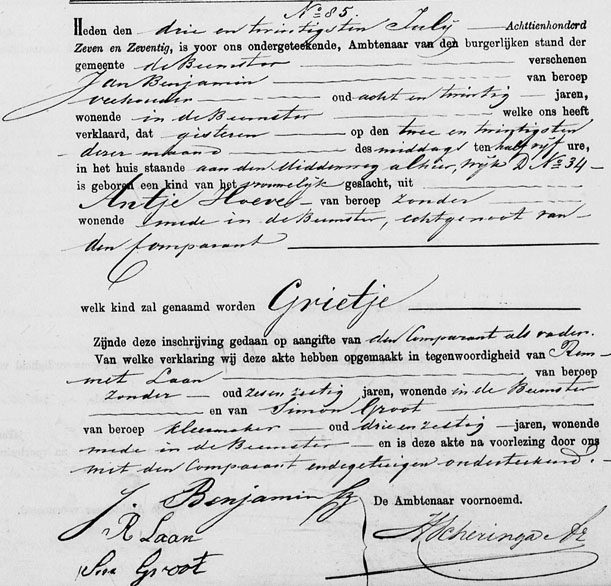 No 85.
Heden den drie en twintigsten July Achttienhonderd
Zeven en Zeventig, is voor ons ondergeteekende, Ambtenaar van den burgerlijken stand der
gemeente de Beemster verschenen
Jan Benjamin van beroep
veehouder oud acht en twintig jaren,
wonende in de Beemster welke ons heeft
verklaard, dat gisteren op den twee en twintigsten
dezer maand des middags ten half vijf ure,
in het huis staande aan den Middenweg alhier, wijk D No 34
is geboren een kind van het vrouwelijk geslacht, uit
Antje Hoeve van beroep zonder
wonende mede in de Beemster, echtgenoot van
den Comparant
welk kind zal genaamd worden Grietje
Zijnde deze inschrijving gedaan op aangifte van den Comparant als vader.
Van welke verklaring wij deze akte hebben opgemaakt in tegenwoordigheid van Rem-
met Laan van beroep
zonder oud zes en zestig jaren, wonende in de Beemster
en van Simon Groot
van beroep kleermaker oud drie en zestig jaren, wonende
mede in de Beemster en is deze akte na voorlezing door ons
met den Comparant en de getuigen onderteekend.
J. Benjamin Jz De Ambtenaar voornoemd.
R Laan Scheringa
Groot